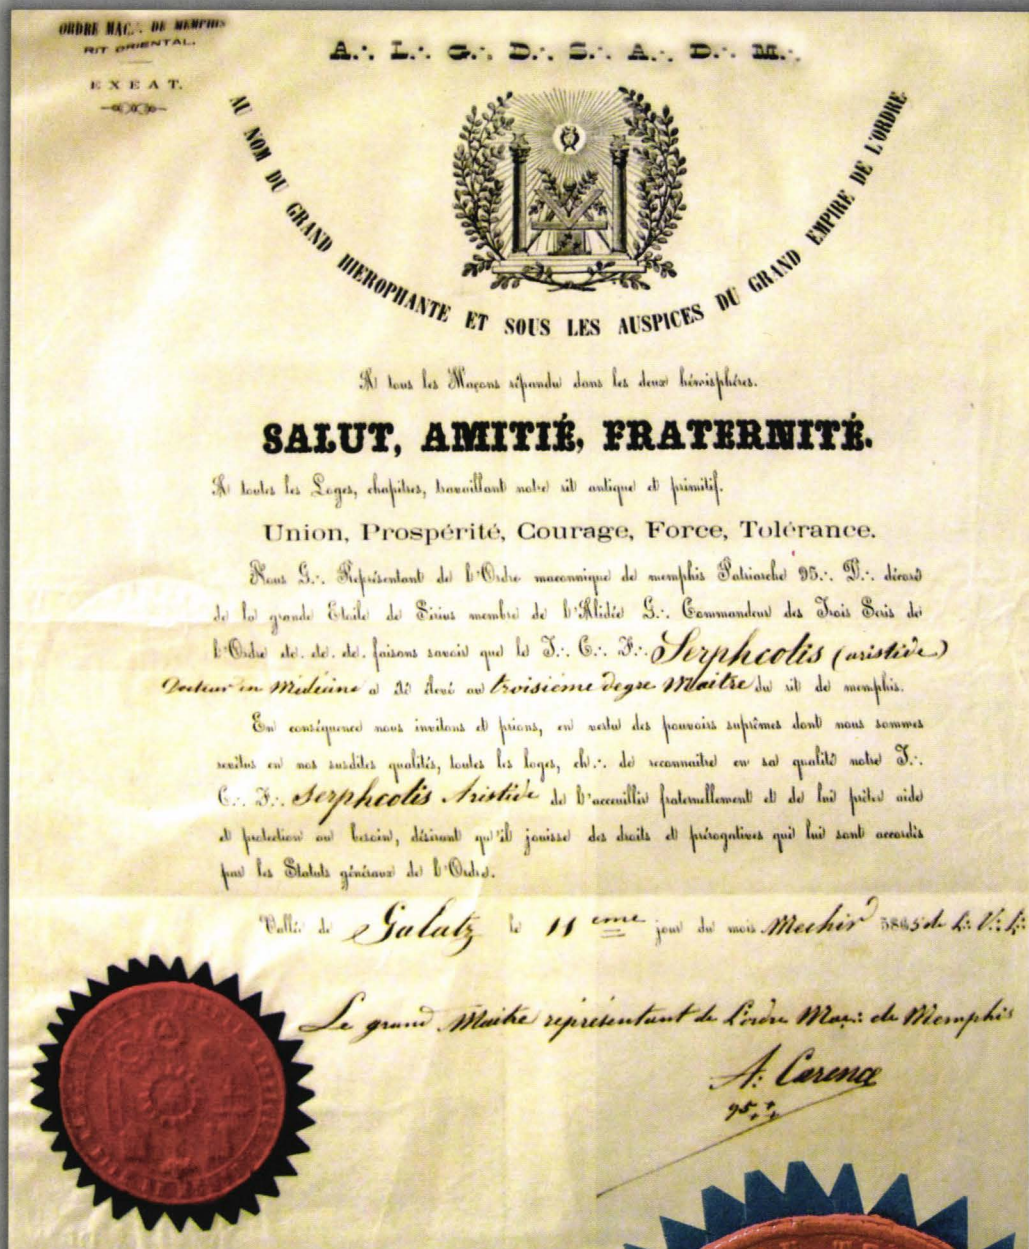 ORDRE MAÇ∴ DE MEMPHIS
RIT ORIENTAL.
EXEAT.
A∴ L∴ G∴ D∴ S∴ A∴ D∴ M∴
AU NOM DU GRAND HIEROPHANTE ET SOUS LES AUSPICES DU GRAND EMPIRE DE L'ORDRE
A tous les Maçons répandu dans les deux hémisphéres.
SALUT, AMITIÉ, FRATERNITÉ.
A toutes les Loges, chapitres, travaillant notre rit antique et primitif.
Union, Prospérité, Courage, Force, Tolérance.
Nous G∴ Représentant de l'Ordre maconnique de memphis Patriarche 95∴ D∴ décoré
de la grande Etoile de Sirius membre de l'Alidée G∴ Commandeur des Trois Seris de
l'Ordre etc. etc. etc. faisons savoir que le T∴ C∴ F∴ Serphcotis (aristide)
Docteur en Médecine a été élevé au troisième degre Maitre du rit de memphis.
En conséquence nous invitons et prions, en vertu des pouvoirs suprêmes dont nous sommes
revêtus en nos susdites qualités, toutes les loges, ch∴ de reconnaitre en sa qualité notre T∴
C∴ F∴ Serphcotis Aristide de l'acceuillir fraternellement et de lui prêter aide
et protection au besoin, désirant qu'il jouisse des droits et prérogatives qui lui sont accordés
par les Statuts généraux de l'Ordre.
Vallée de Galatz le 11 eme jour du mois Mechir 5865 de L∴ V∴ L∴
Le grand Maitre représentant de L'ordre Maç∴ de Memphis
A: Carence
95